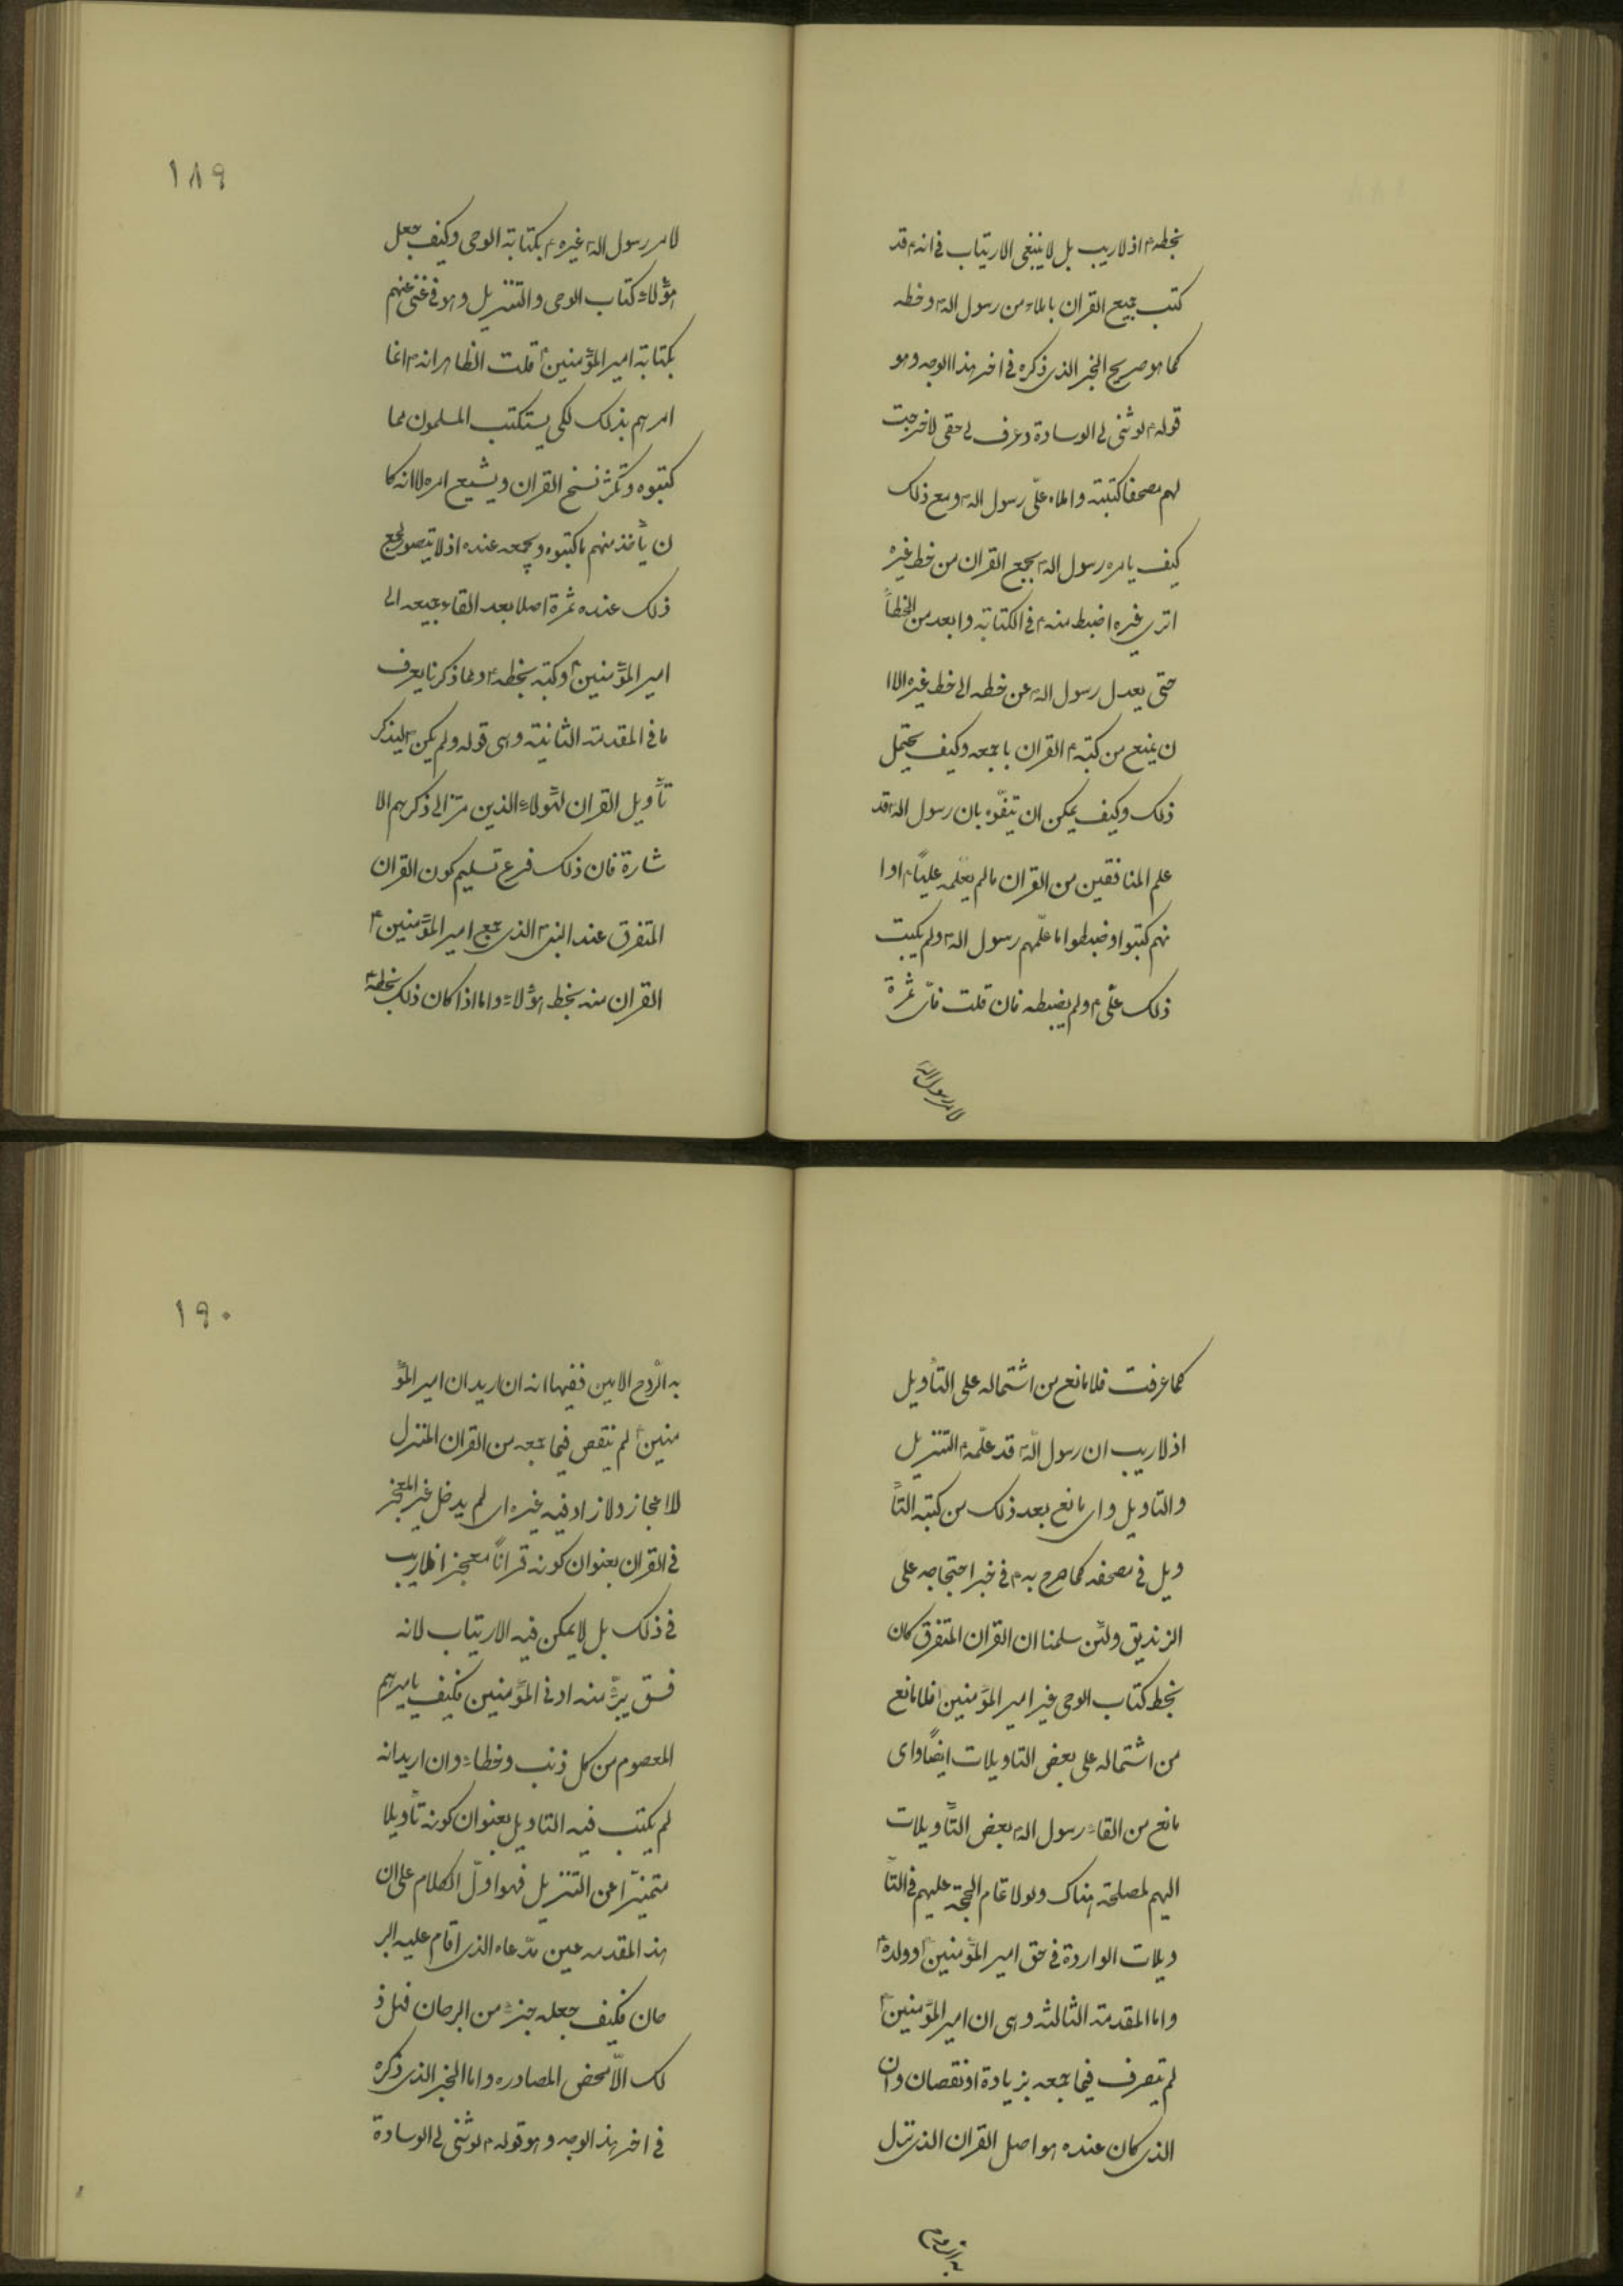 بخطه؏ اذ لاريب بل لا ينبغى الارتياب فى انه؏ قد
كتب جميع القران باملاء من رسول الله؏ وخطه
كما هو صريح الخبر الذى ذكره فى اخر هذا الوجه وهو
قوله؏ لو ثنى لى الوسادة وعرف لى حقى لاخرجت
لهم مصحفا كتبته واملاه علىّ رسول الله؏ ومع ذلك
كيف يامره رسول الله؏ بجمع القران من خط غيره
اترى غيره اضبط منه؏ فى الكتابة وابعد من الخطأ
حتى يعدل رسول الله؏ عن خطه الى خط غيره الا ا
ن يمنع من كتبه؏ القران باجمعه وكيف يحتمل
ذلك وكيف يمكن ان يتفوّه بان رسول الله؏ قد
علم المنافقين من القران مالم يعلّمه علياً؏ او ا
نهم كتبوا وضبطوا ما علّمهم رسول الله؏ ولم يكتب
ذلك علّى؏ ولم يضبطه فان قلت فاىّ ثمرة
لامر رسول الله؏
١٨٩
لامر رسول الله؏ غيره؏ بكتابة الوحى وكيف جعل
هؤلاء كتاب الوحى والتنزيل وهو فى غنى عنهم
بكتابة امير المؤمنين؏ قلت الظاهر انه؏ انما
امرهم بذلك لكى يستكتب المسلمون مما
كتبوه وتكثر نسخ القران ويشيع امره لا انه كا
ن يأخذ منهم ما كتبوه ويجمعه عنده اذ لا يتصور لجمع
ذلك عنده ثمرة اصلا بعد القاء جميعه الى
امير المؤمنين؏ وكتبه بخطه؏ ومما ذكرنا يعرف
ما فى المقدمة الثانية وهى قوله ولم يكن؏ ليذكر
تأويل القران لهؤلاء الذين مرّ الى ذكرهم الا
شارة فان ذلك فرع تسليم كون القران
المتفرق عند النبى؏ الذى جمع امير المؤمنين؏
القران منه بخط هؤلاء واما اذا كان ذلك بخطه؏
كما عرفت فلا مانع من اشتماله على التأويل
اذ لاريب ان رسول الله؏ قد علّمه؏ التنزيل
والتاويل واى مانع بعد ذلك من كتبه التأ
ويل فى مصحفه كما صرح به؏ فى خبر احتجاجه على
الزنديق ولئن سلمنا ان القران المتفرق كان
بخط كتاب الوحى غير امير المؤمنين؏ فلا مانع
من اشتماله على بعض التاويلات ايضاً واى
مانع من القاء رسول الله؏ بعض التأويلات
اليهم لمصلحة هناك ولولا تمام الحجة عليهم فى التأ
ويلات الواردة فى حق امير المؤمنين؏ وولده؏
واما المقدمة الثالثه وهى ان امير المؤمنين؏
لم يتصرف فيما جمعه بزيادة او نقصان وان
الذى كان عنده هو اصل القران الذى نزل
به الروح
١٩٠
به الرّوح الامين ففيها انه ان اريد ان امير المؤ
منين؏ لم ينقص فيما جمعه من القران المنزل
للاعجاز ولا زاد فيه غيره اى لم يدخل غير المعجز
فى القران بعنوان كونه قراناً معجزا فلاريب
فى ذلك بل لا يمكن فيه الارتياب لانه
فسق يبرّء منه ادنى المؤمنين فكيف باميرهم
المعصوم من كل ذنب وخطاء وان اريد انه
لم يكتب فيه التاويل بعنوان كونه تأويلا
متميّزا عن التنزيل فهو اوّل الكلام على ان
هذا المقدمه عين مدّعاه الذى اقام عليه البر
هان فكيف جعله جزء من البرهان فهل ذ
لك الّا محض المصادره واما الخبر الذى ذكره
فى اخر هذا الوجه وهو قوله؏ لو ثنى لى الوسادة